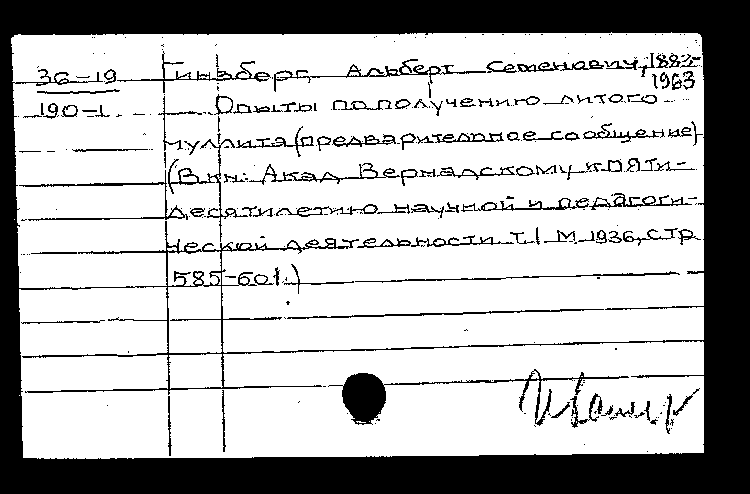 36-19
190-1
Гинзберг, Альберт Семенович, 1883-
1963
Опыты по получению литого
муллита (предварительное сообщение)
(В кн: Акад Вернадскому к пяти-
десятилетию научной и педагоги-
ческой деятельности. Т.I М 1936, стр
585-601.)